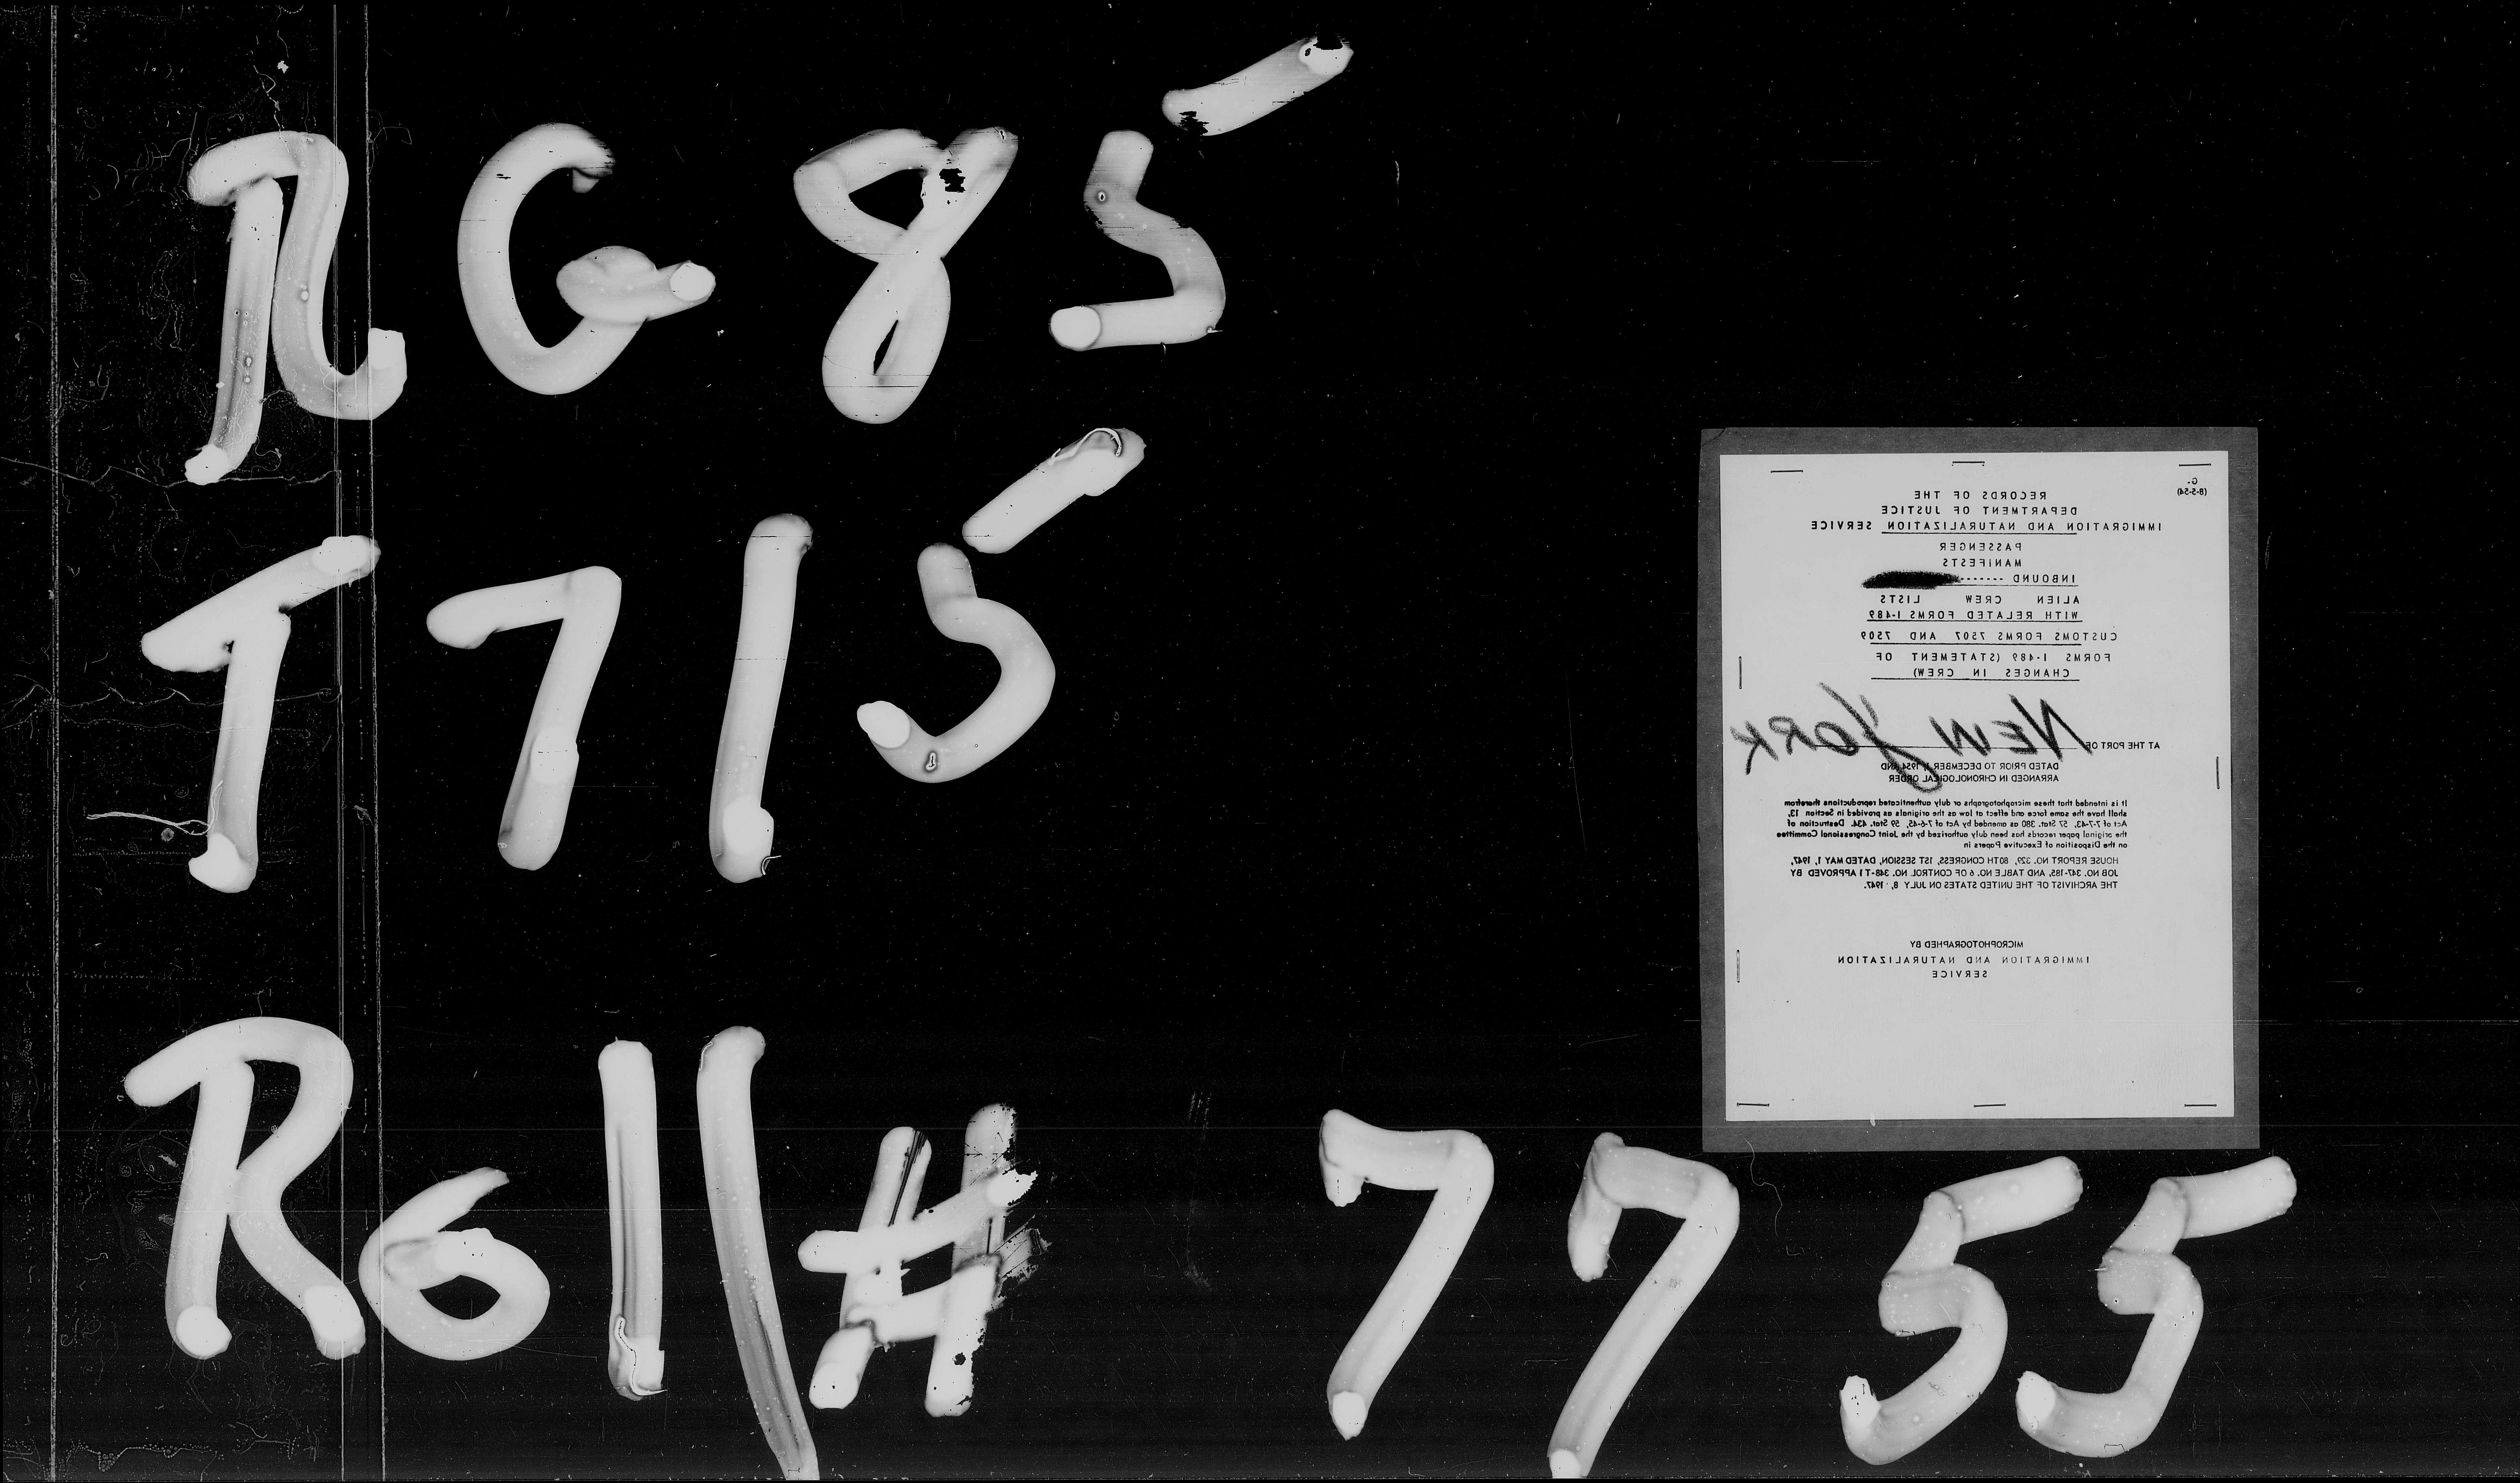 RG 85
T 715
Roll # 7755
G-
(8-5-54)
RECORDS OF THE
DEPARTMENT OF JUSTICE
IMMIGRATION AND NATURALIZATION SERVICE
PASSENGER
MANIFESTS
INBOUND -------
ALIEN CREW LISTS
WITH RELATED FORMS I-489
CUSTOMS FORMS 7507 AND 7509
FORMS I-489 (STATEMENT OF
CHANGES IN CREW)
AT THE PORT OF NEW YORK
DATED PRIOR TO DECEMBER 1, 1954, AND
ARRANGED IN CHRONOLOGICAL ORDER
It is intended that these microphotographs or duly authenticated reproductions therefrom
shall have the same force and effect at law as the originals as provided in Section 13,
Act of 7-7-43, 57 Stat. 380 as amended by Act of 7-6-45, 59 Stat. 434. Destruction of
the original paper records has been duly authorized by the Joint Congressional Committee
on the Disposition of Executive Papers in
HOUSE REPORT NO. 329, 80TH CONGRESS, 1ST SESSION, DATED MAY 1, 1947,
JOB NO. 347-185, AND TABLE NO. 6 OF CONTROL NO. 348-T1 APPROVED BY
THE ARCHIVIST OF THE UNITED STATES ON JULY 8, 1947.
MICROPHOTOGRAPHED BY
IMMIGRATION AND NATURALIZATION
SERVICE